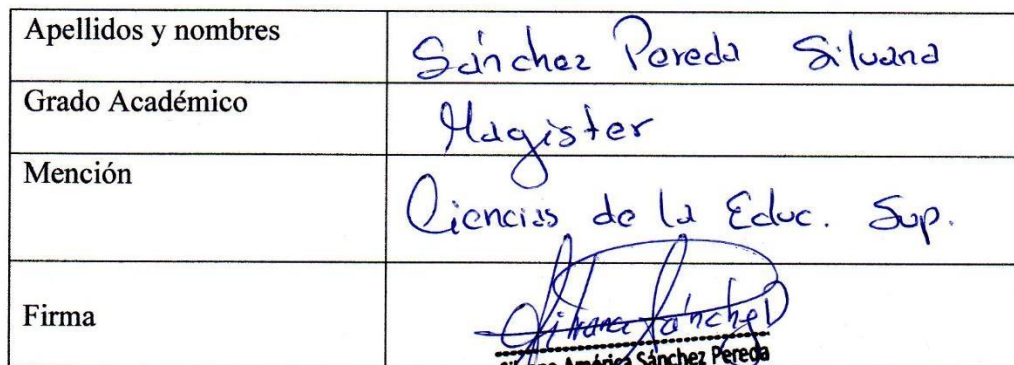 Apellidos y nombres Sánchez Pereda Silvana
Grado Académico Magister
Mención Ciencias de la Educ. Sup.
Firma Silvana Sánchez P
Silvana América Sánchez Pereda